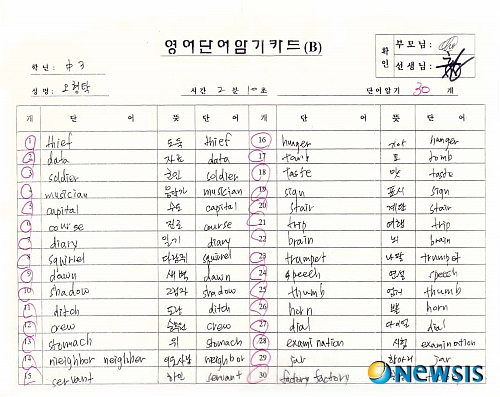 영어단어암기카드(B)
확인 부모님:
선생님:
학년: 中3
성명: 오형탁 시간 2분 10초 단어암기 30개
개 단어 뜻 단어 개 단어 뜻 단어
1 thief 도둑 thief 16 hunger hunger
2 data 자료 data 17 tomb 묘 tomb
3 soldier 군인 soldier 18 taste 맛 taste
4 musician 음악가 musician 19 sign 표시 sign
5 capital 수도 capital 20 stair 계단 stair
6 course 진로 course 21 trip 여행 trip
7 diary 일기 diary 22 brain 뇌 brain
8 squirrel 다람쥐 squirrel 23 trumpet 나팔 trumpet
9 dawn 새벽 dawn 24 speech 연설 speech
10 shadow 그림자 shadow 25 thumb 엄지 thumb
11 ditch 도랑 ditch 26 horn 뿔 horn
12 crew 승무원 crew 27 dial 다이얼 dial
13 stomach 위 stomach 28 examination 시험 examination
14 neighbor neighber 이웃사람 neighbor 29 jar 항아리 jar
15 servant 하인 servant 30 factory factory
NEWSIS